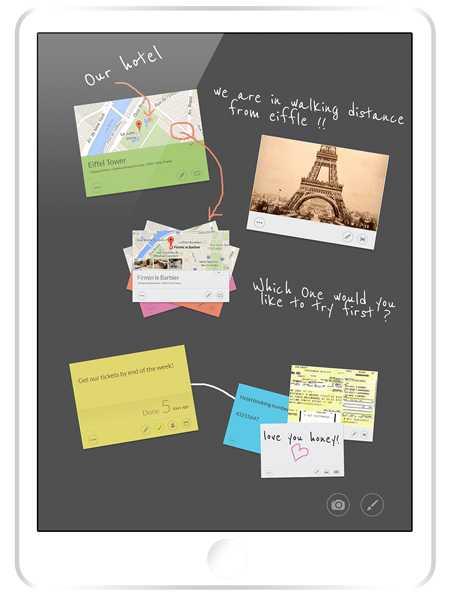 Our hotel
we are in walking distance
from eiffle !!
Eiffel Tower
Firmin le Barbier
Which One would you
like to try first ?
Get our tickets by end of the week!
Done 5 days ago
Hotel booking number
43215647
love you honey!